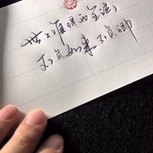 世上谁得两全法
不负如来不负卿